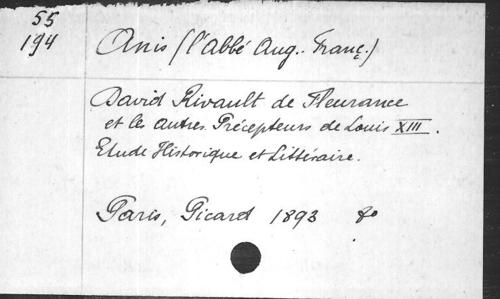 55
194
Anis (l'Abbé Aug.-Franç.)
David Rivault de Fleurance
et les autres Précepteurs de Louis XIII.
Etude Historique et Littéraire.
Paris, Picard 1893 8o